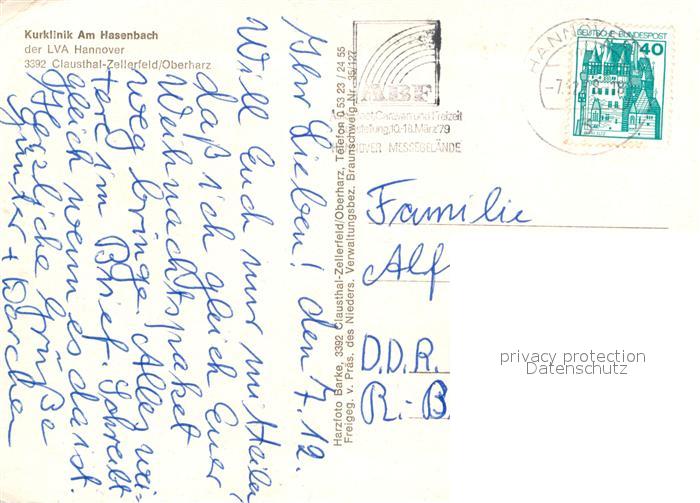 Kurklinik Am Hasenbach
der LVA Hannover
3392 Clausthal-Zellerfeld/Oberharz
Ihr Lieben! den 7.12.
Will Euch nur mitteilen
daß ich gleich Euer
Weihnachtspaket
weg bringe. Alles wei-
tere im Brief. Schreibt
gleich wenn es da ist.
Herzliche Grüße
Günter + Dorchen
Harzfoto Barke, 3392 Clausthal-Zellerfeld/Oberharz, Telefon 0 53 23 / 24 55
Freigeg. v. Präs. des Nieders. Verwaltungsbez. Braunschweig Nr. 35/127
ABF
Caravan und Freizeit
10.-18. März '79
HANNOVER MESSEGELÄNDE
HANNOVER
DEUTSCHE BUNDESPOST
40
Familie
Alf
D.D.R.
R.-B.
privacy protection
Datenschutz